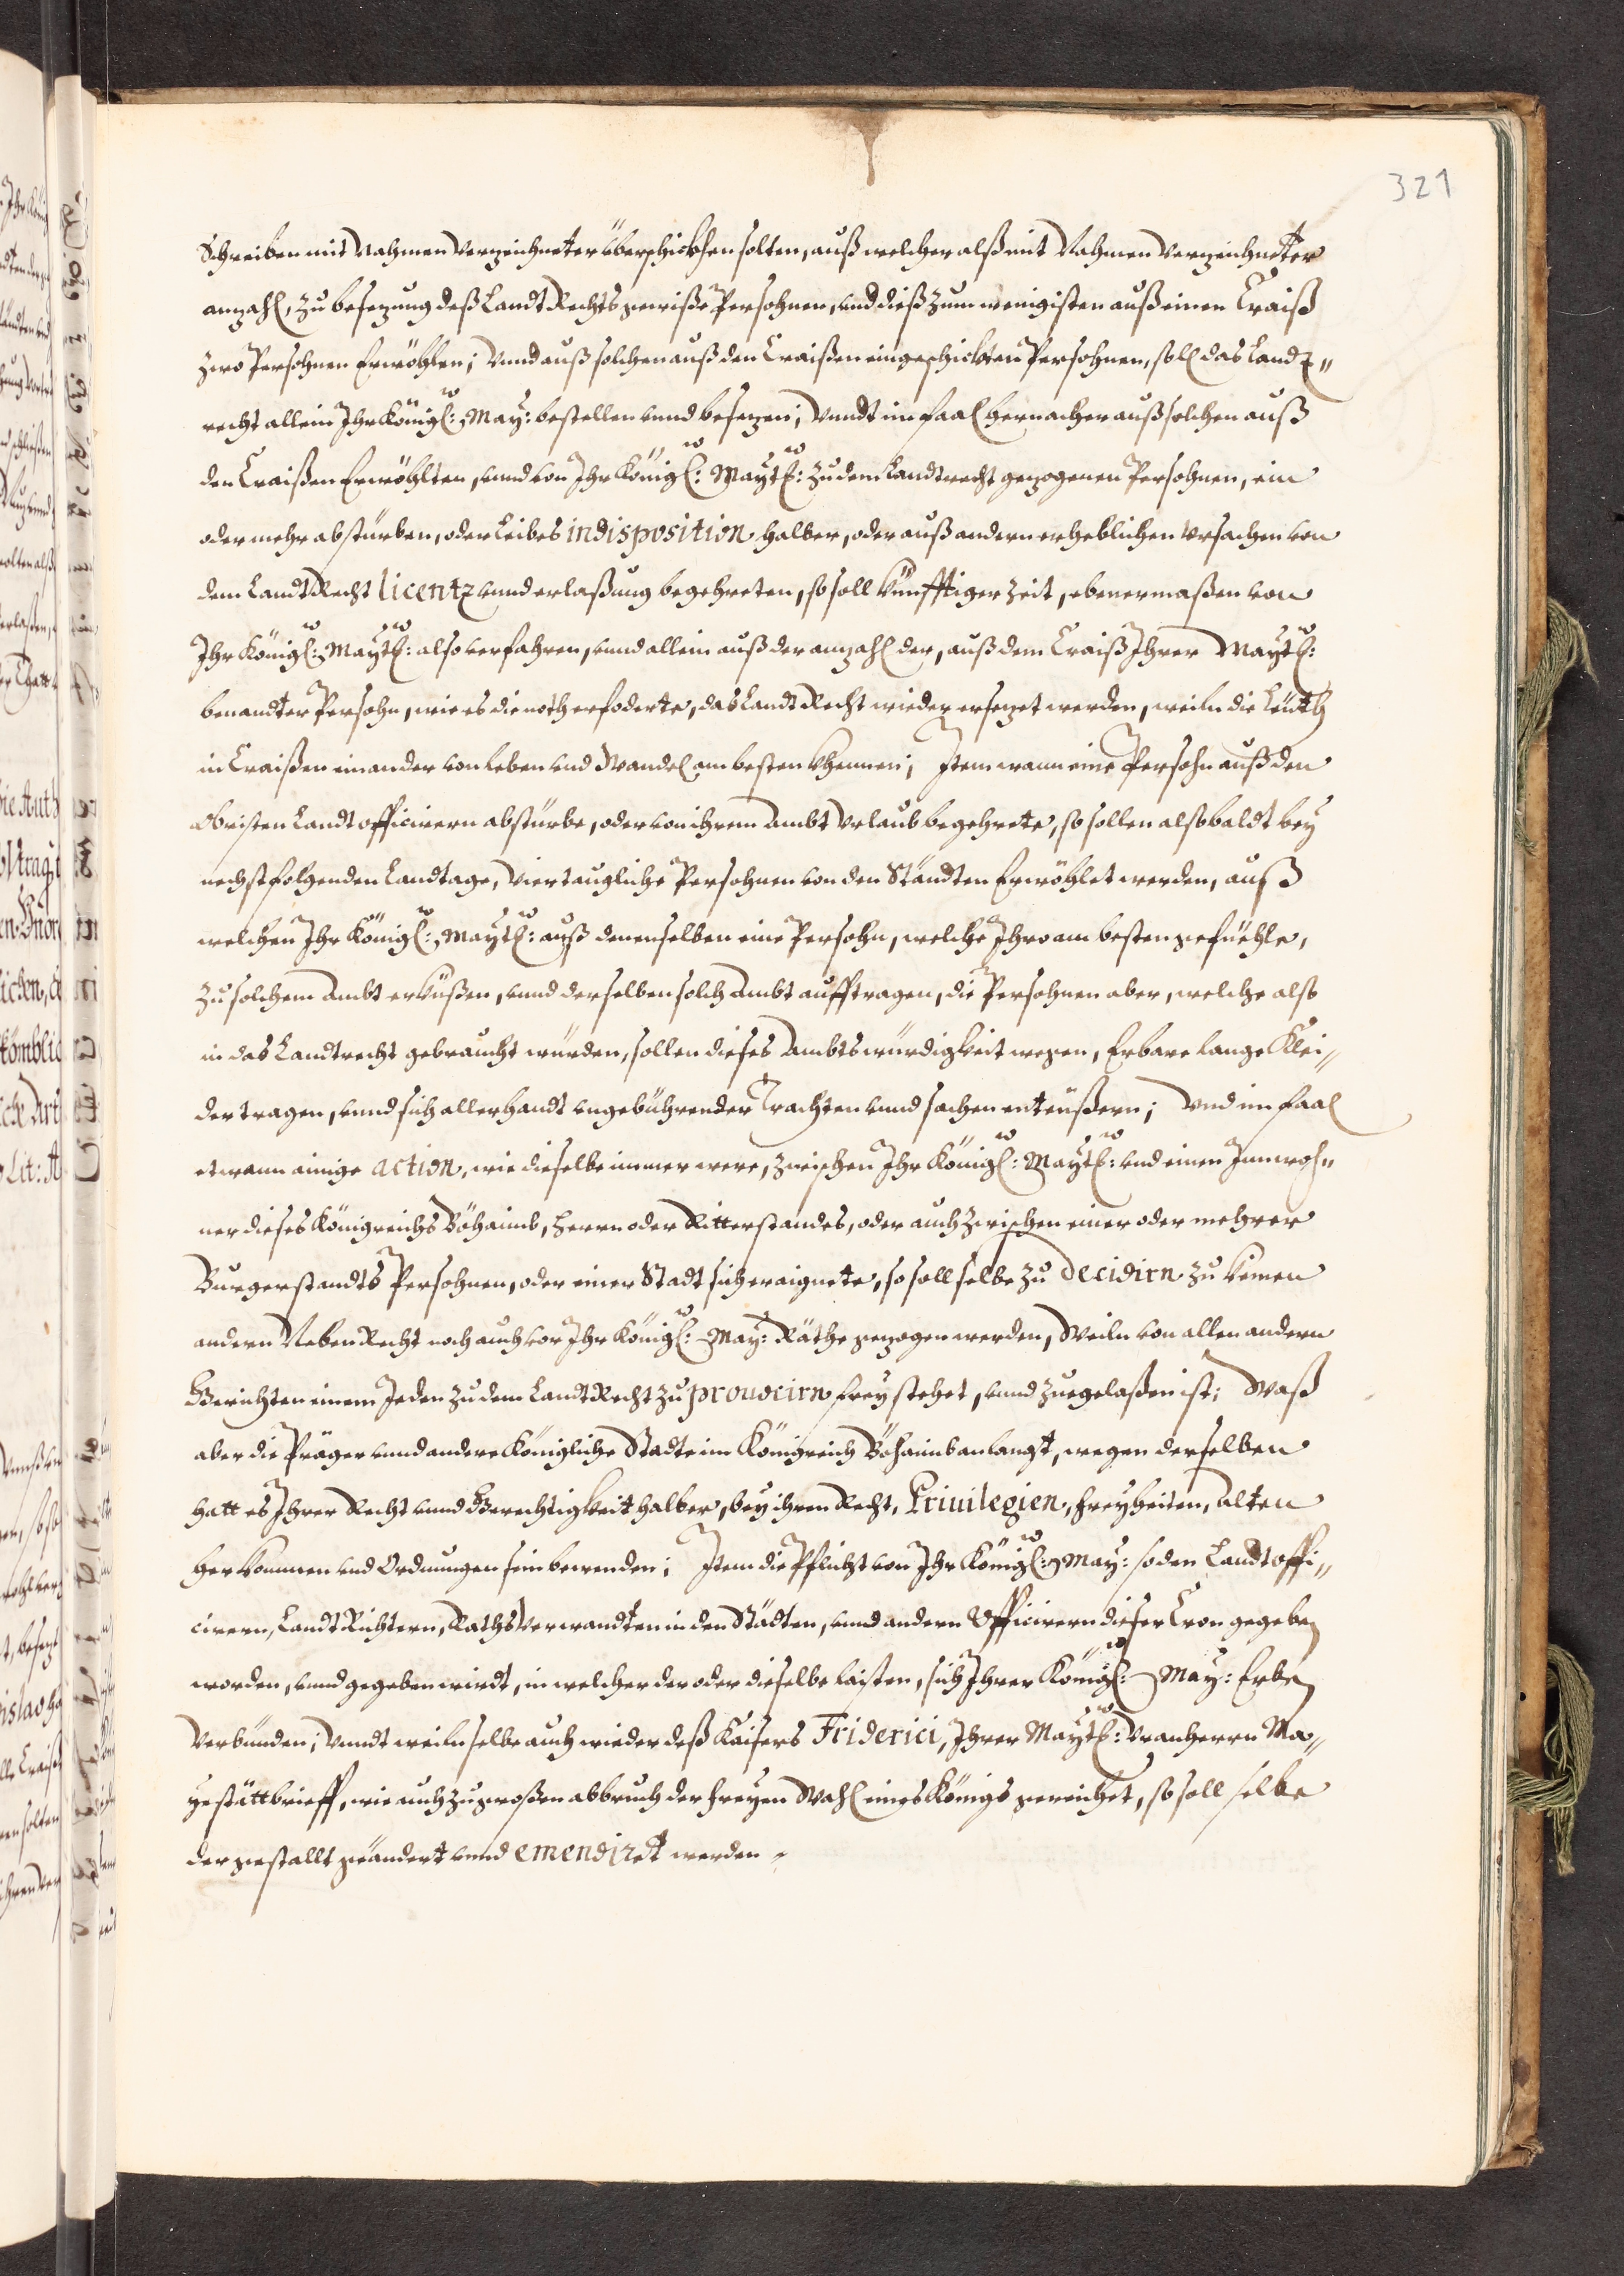 321
Schreiben mit Nahmen verzeichneter überschickhen solten, auß welcher alß mit Nahmen verzeichneter
anzahl, zu besezung deß Landt Rechts gewiße Persohnen, und dieß zum wenigisten auß einen Craiß
zwo Persohnen Erwöhlen; Vnnd auß solchen auß den Craißen eingeschickten Persohnen, soll das Landt„
recht allein Ihr Königl: May: bestellen vnnd besezen; Vnndt im faal hernacher auß solchen auß
den Craißen Erwöhlten, vnnd von Ihr Königl: Maytl: zu dem Landtrecht gezogenen Persohnen, ein
oder mehr abstürben, oder Leibes indisposition halber, oder auß andern erheblichen Vrsachen von
dem Landt Recht licentz vnnd erlaßung begehreten, so soll künfftiger Zeit, ebenermaßen von
Ihr Königl: Maytl: also verfahren, vnnd allein auß der anzahl der, auß dem Craiß Ihrer Maytl:
benandter Persohn, wie es die noth erfoderte, das Landt Recht wieder ersezet werden, weiln die Leüth
in Craißen einander von Leben vnd Wandel am besten khennen; Item wann eine Persohn auß den
Obristen Landt officirern abstürbe, oder von ihrem Ambt Vrlaub begehrete, so sollen alsobaldt bey
nechstfolgenden Landtage, Vier taugliche Persohnen von den Ständten Erwöhlet werden, auß
welchen Ihr Königl: Maytl: auß denenselben eine Persohn, welche Ihro am besten gefüehle,
zu solchem Ambt erküßen, vnnd derselben solch Ambt aufftragen, die Persohnen aber, welche also
in das Landtrecht gebraucht würden, sollen dieses Ambts würdigkeit wegen, Erbare lange Klei„
der tragen, vnnd sich allerhandt vngebührender Trachten vnnd sachen enteüßern; Vnd im faal
etwann einige action, wie dieselbe immer were, zwischen Ihr Königl: Maytl: vnd einen Innwoh„
ner dieses Königreichs Böhaimb, Herrn oder Ritterstandes, oder auch zwischen einer oder mehrer
Burgerstandts Persohnen, oder einer Stadt sich eraignete, so soll selbe zu decidirn zu keinen
andern Neben Recht noch auch vor Ihr Königl: May: Räthe gezogen werden, Weiln von allen andern
Gerichten einem Jeden zu dem Landt Recht zu prouocirn frey stehet, vnnd zuegelaßen ist; Waß
aber die Prager vnnd andere Königliche Stadte im Königreich Böhaimb anlangt, wegen derselben
hatt es Ihrer Recht vnnd Gerechtigkeit halber, bey ihren Recht, Priuilegien, Freyheiten, Alten
herkommen vnd Ordnungen sein bewenden; Item die Pflicht von Ihr Königl: May: so den Landt offi„
cirern, Landt Richtern, Raths Verwandten in den Städten, vnnd andern Officirern dieser Cron gegeben
worden, vnnd gegeben wirdt, in welcher der oder dieselbe laisten, sich Ihrer Königl: May: Erben
Verbünden; Vnndt weiln selbe auch wieder deß Kaisers Friderici, Ihrer Maytl: Vranherrn Ma„
yestättbrieff, wie auch zu großen abbruch der freyen Wahl eines Königs gereichet, so soll selbe
der gestallt geändert vnnd emendiret werden